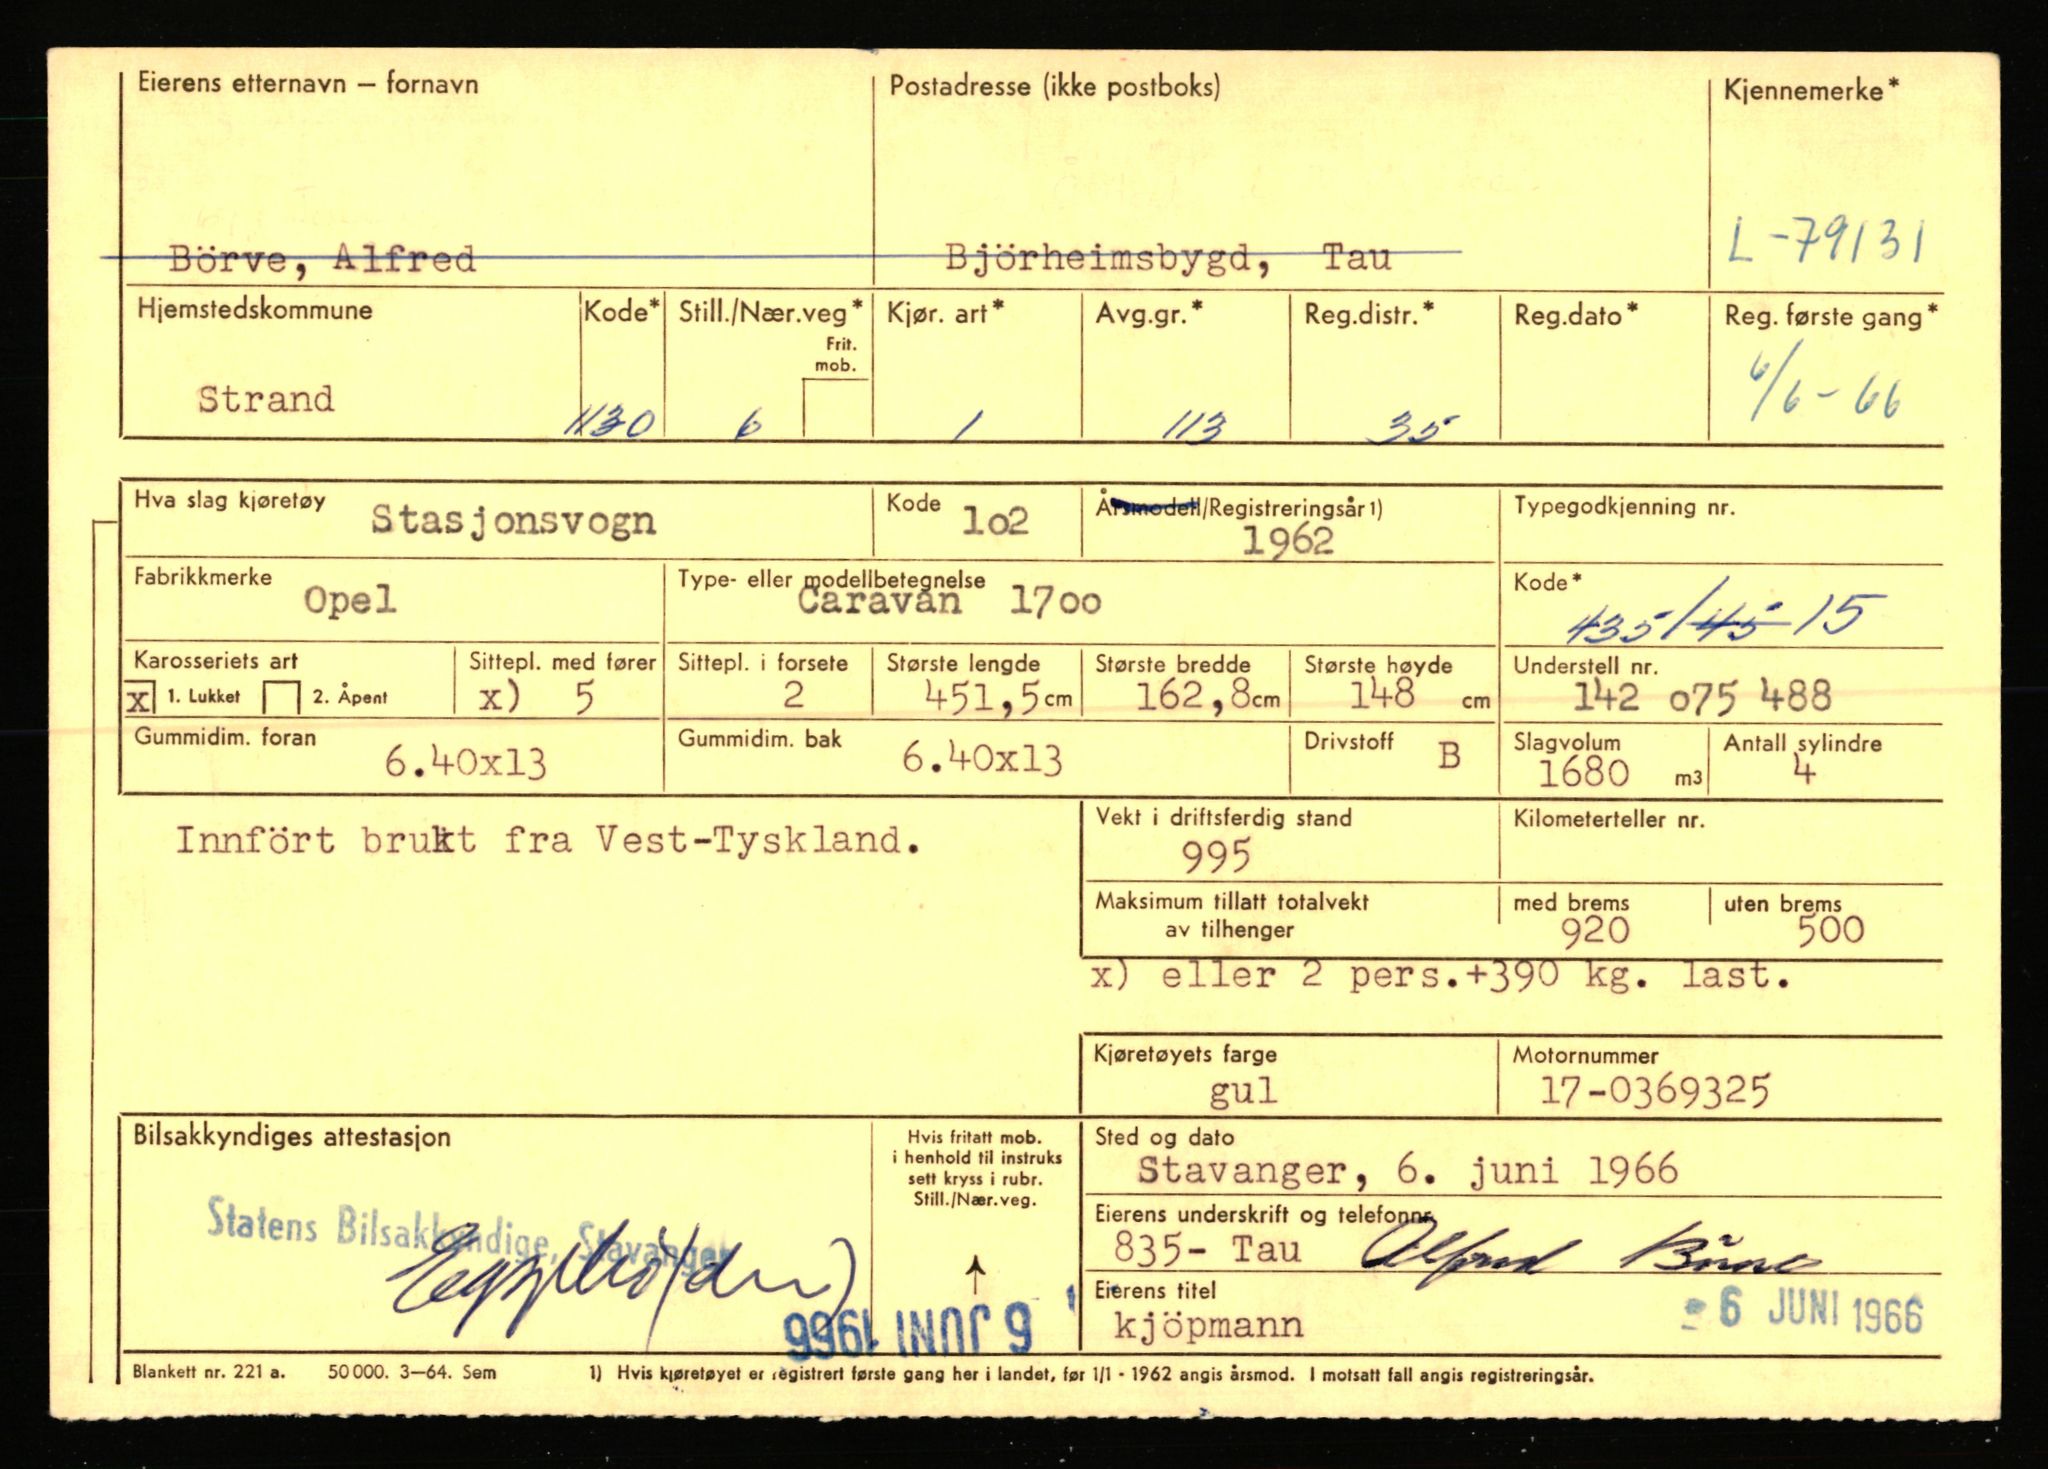 Eierens etternavn – fornavn Postadresse (ikke postboks) Kjennemerke*
Börve, Alfred Björheimsbygd, Tau L-79131
Hjemstedskommune Kode* Still./Nær.veg* Kjør. art* Avg.gr.* Reg.distr.* Reg.dato* Reg. første gang*
Frit.
mob.
Strand 1130 6 1 113 35 6/6-66
Hva slag kjøretøy Stasjonsvogn Kode 1o2 Årsmodell/Registreringsår1) 1962 Typegodkjenning nr.
Fabrikkmerke Opel Type- eller modellbetegnelse Caravan 17oo Kode* 435/45 15
Karosseriets art Sittepl. med fører Sittepl. i forsete Største lengde Største bredde Største høyde Understell nr.
x 1. Lukket 2. Åpent x) 5 2 451,5 cm 162,8 cm 148 cm 142 o75 488
Gummidim. foran Gummidim. bak Drivstoff Slagvolum Antall sylindre
6.40x13 6.40x13 B 1680 m3 4
Innfört brukt fra Vest-Tyskland.
Vekt i driftsferdig stand Kilometerteller nr.
995
Maksimum tillatt totalvekt med brems uten brems
av tilhenger 920 500
x) eller 2 pers.+390 kg. last.
Kjøretøyets farge Motornummer
gul 17-0369325
Bilsakkyndiges attestasjon
Statens Bilsakkyndige, Stavanger
Hvis fritatt mob.
i henhold til instruks
sett kryss i rubr.
Still./Nær.veg.
6 JUNI 1966
Sted og dato
Stavanger, 6. juni 1966
Eierens underskrift og telefonnr.
835- Tau Alfred Börve
Eierens titel
kjöpmann
- 6 JUNI 1966
Blankett nr. 221 a. 50 000. 3–64. Sem 1) Hvis kjøretøyet er registrert første gang her i landet, før 1/1 - 1962 angis årsmod. I motsatt fall angis registreringsår.